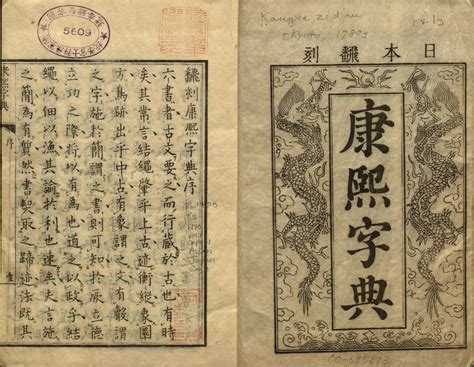 日本飜刻
康熙字典
Kangxi zidian
(Kyoto, 1780)
飜刻康熙字典序
六書者古文要之而行藏於古也有時
矣其常言結繩肇乎上古迹衡縱象圖
方爲跡出乎中古有象謂之文有聲謂
之字施於簡謂之書則可知於承立德
立功之際將以有爲也道之以政乎結
繩以佃以漁其諭於利也速矣史言施
之簡爲有契然書契取之歸迹法既其
康熙字典
序
5609